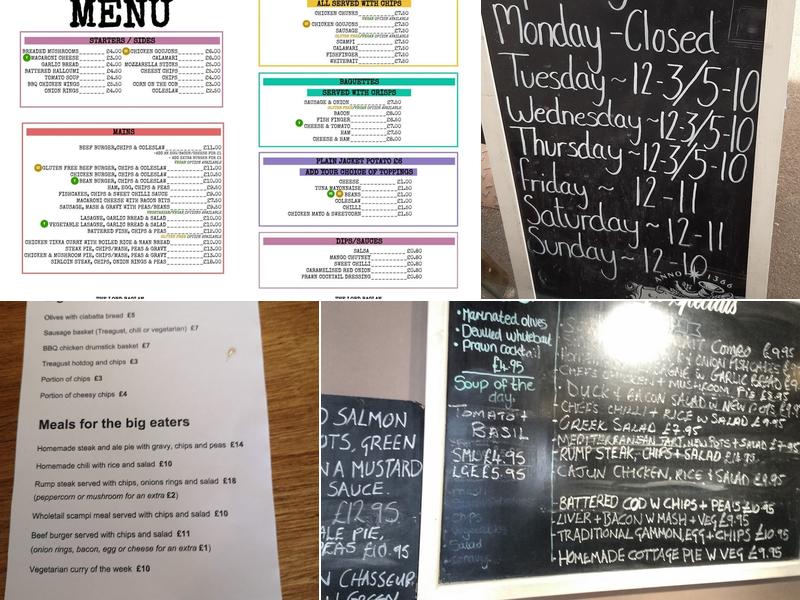 MENU
STARTERS / SIDES
BREADED MUSHROOMS £4.00
MACARONI CHEESE £5.00
GARLIC BREAD £4.00
BATTERED HALLOUMI £4.50
TOMATO SOUP £4.50
BBQ CHICKEN WINGS £5.50
ONION RINGS £4.00
CHICKEN GOUJONS £6.00
CALAMARI £6.00
MOZZARELLA STICKS £5.00
CHEESY CHIPS £5.00
CHIPS £4.00
CORN ON THE COB £2.00
COLESLAW £2.50
MAINS
BEEF BURGER, CHIPS & COLESLAW £11.00
- ADD EXTRA BURGER FOR £3
VEGAN OPTION AVAILABLE
GLUTEN FREE BEEF BURGER, CHIPS & COLESLAW £11.00
CHICKEN BURGER, CHIPS & COLESLAW £10.50
BEAN BURGER, CHIPS & COLESLAW £11.00
HAM, EGG, CHIPS & PEAS £9.50
FISHCAKES, CHIPS & SWEET CHILLI SAUCE £9.00
MACARONI CHEESE WITH BACON BITS £7.50
SAUSAGE, MASH & GRAVY WITH PEAS/BEANS £9.50
VEGETARIAN/VEGAN OPTION AVAILABLE
LASAGNE, GARLIC BREAD & SALAD £10.00
VEGETABLE LASAGNE, GARLIC BREAD & SALAD £10.00
BATTERED FISH, CHIPS & PEAS £12.00
GLUTEN FREE OPTION AVAILABLE
CHICKEN TIKKA CURRY WITH BOILED RICE & NAAN BREAD £10.00
STEAK PIE, CHIPS/MASH, PEAS & GRAVY £13.00
CHICKEN & MUSHROOM PIE, CHIPS/MASH, PEAS & GRAVY £13.00
SIRLOIN STEAK, CHIPS, ONION RINGS & PEAS £18.00
ALL SERVED WITH CHIPS
CHICKEN CHUNKS £7.50
VEGAN OPTION AVAILABLE
CHICKEN GOUJONS £7.50
SAUSAGE £7.50
GLUTEN FREE/VEGAN OPTION AVAILABLE
SCAMPI £7.50
CALAMARI £7.50
FISHFINGER £7.50
WHITEBAIT £7.50
BAGUETTES
SERVED WITH CRISPS
SAUSAGE & ONION £7.50
GLUTEN FREE/VEGAN OPTION AVAILABLE
BACON £8.00
FISH FINGER £8.00
CHEESE & TOMATO £7.00
HAM £7.50
CHEESE & HAM £8.00
PLAIN JACKET POTATO £5
ADD YOUR CHOICE OF TOPPINGS
CHEESE £1.00
TUNA MAYONNAISE £1.50
BEANS £1.00
COLESLAW £1.00
CHILLI £1.50
CHICKEN MAYO & SWEETCORN £1.50
DIPS/SAUCES
SALSA £0.80
MANGO CHUTNEY £0.80
SWEET CHILLI £0.80
CARAMELISED RED ONION £0.80
PRAWN COCKTAIL DRESSING £0.80
THE LORD RAGLAN
Monday - Closed
Tuesday ~ 12-3/5-10
Wednesday ~ 12-3/5-10
Thursday ~ 12-3/5-10
Friday ~ 12-11
Saturday ~ 12-11
Sunday ~ 12-10
ANNO 1366
Olives with ciabatta bread £5
Sausage basket (Treagust, chill or vegetarian) £7
BBQ chicken drumstick basket £7
Treagust hotdog and chips £3
Portion of chips £3
Portion of cheesy chips £4
Meals for the big eaters
Homemade steak and ale pie with gravy, chips and peas £14
Homemade chill with rice and salad £10
Rump steak served with chips, onions rings and salad £18
(peppercorn or mushroom for an extra £2)
Wholetail scampi meal served with chips and salad £10
Beef burger served with chips and salad £11
(onion rings, bacon, egg or cheese for an extra £1)
Vegetarian curry of the week £10
D SALMON
OTS, GREEN
N A MUSTARD
SAUCE.
£12.95
ALE PIE,
PEAS £10.95
N CHASSEUR,
Specials
• Marinated olives
• Devilled whitebait
• Prawn cocktail
£4.95
Soup of the day.
TOMATO +
BASIL
SML £4.95
LGE £5.95
COMBO £9.95
CHICKEN + MUSHROOM PIE
DUCK + BACON SALAD W NEW POTS
CHEF'S CHILLI + RICE W SALAD £9.95
GREEK SALAD £7.95
MEDITERRANEAN TART, NEW POTS + SALAD £7.95
RUMP STEAK, CHIPS + SALAD
CAJUN CHICKEN, RICE + SALAD
BATTERED COD W CHIPS + PEAS £10.95
LIVER + BACON W MASH + VEG £9.95
TRADITIONAL GAMMON, EGG + CHIPS £10.95
HOMEMADE COTTAGE PIE W VEG £9.95